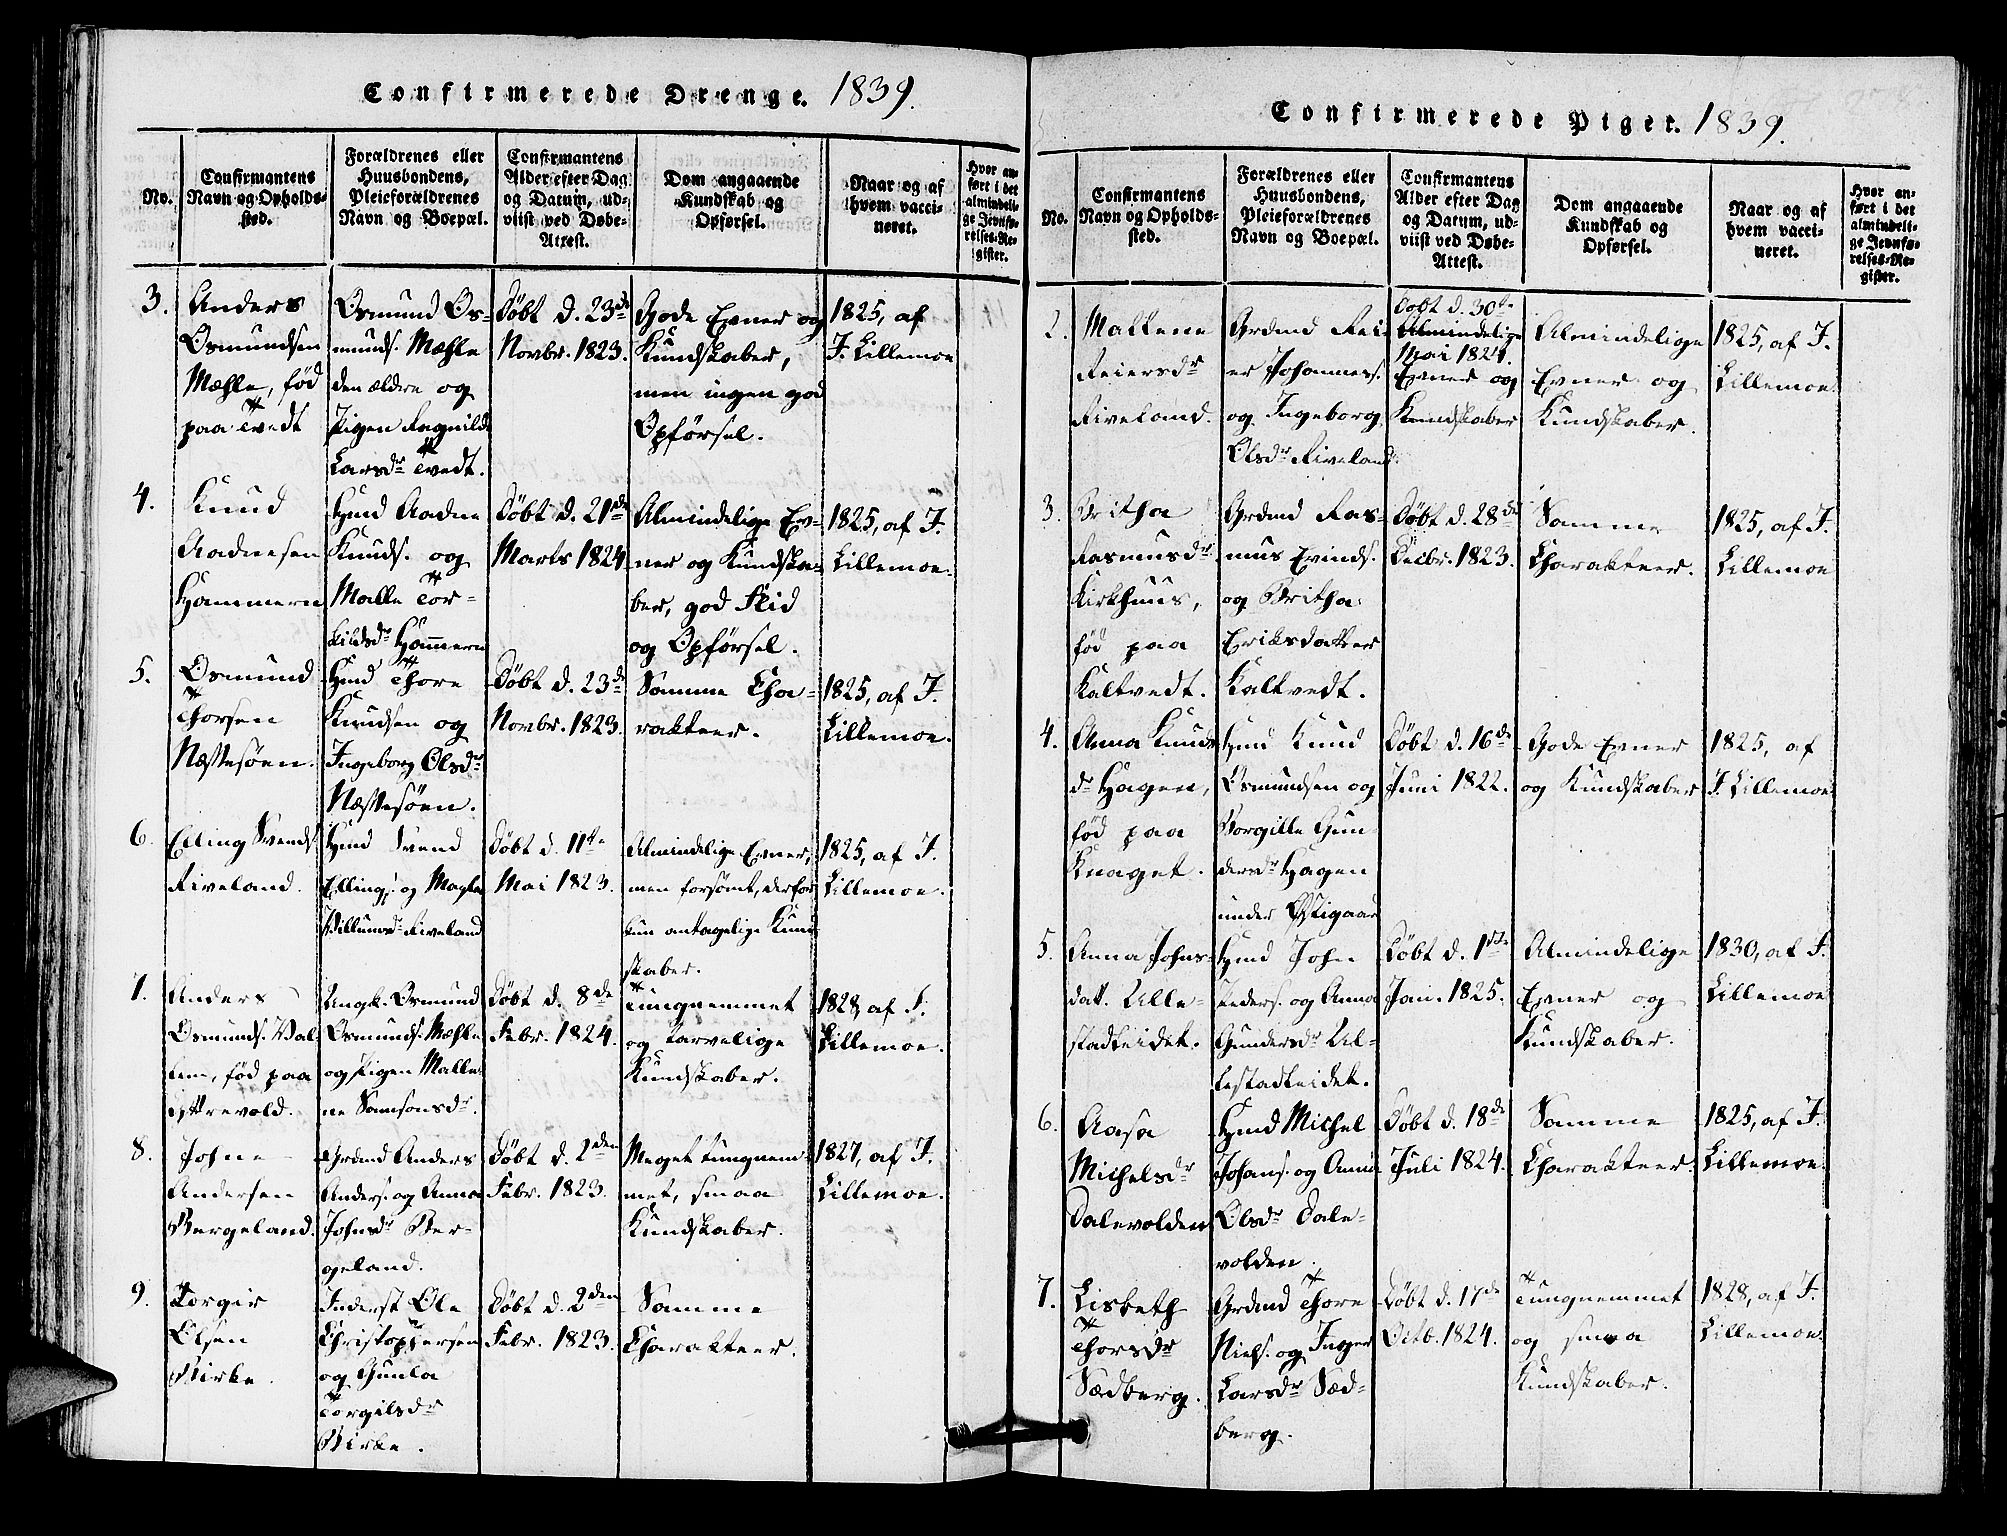 Confirmerede Drenge. 1839.
No.
Confirmantens
Navn og Opholds-
sted.
Forældrenes eller
Huusbondens,
Pleieforældrenes
Navn og Boepæl.
Confirmantens
Alder efter Dag
og Datum, ud-
viist ved Døbe-
Attest.
Dom angaaende
Kundskab og
Opførsel.
Naar og af
hvem vacci-
neret.
Hvor an-
ført i det
almindeli-
ge Jevnfø-
relses-Re-
gister.
3.
Anders
Osmundsen
Mæhle, fød
paa Tvedt
Osmund Os-
munds. Mæhle
den ældre og
Pigen Ragnilde
Larsdr Tvedt.
Döbt d. 23de
Novbr. 1823.
Gode Evner og
Kundskaber,
men ingen god
Opförsel.
1825, af
J. Lillemoe
4.
Knud
Aadnesen
Hammern
Hmd Aadne
Knuds. og
Malle Tor-
kildsdr Hammern
Döbt d. 21de
Marts 1824.
Almindelige Ev-
ner og Kundska-
ber, god Flid
og Opförsel.
1825, af J.
Lillemoe.
5.
Osmund
Thorsen
Næstesöen.
Hmd Thore
Knudsen og
Ingeborg Olsdr
Næstesöen.
Döbt d. 23de
Novbr. 1823.
Samme Cha-
rakteer.
1825, af J.
Lillemoe.
6.
Elling Svends.
Riveland.
Hmd Svend
Ellings. og
Riveland
Döbt d. 11te
Mai 1823.
Almindelige Evner,
men forsömt, derfor
kun antagelige Kund-
skaber.
1825, af J.
Lillemoe.
7.
Anders
Osmunds.
fød paa
Ungk. Osmund
Osmunds. Mæhle
og Pigen Malle-
ne Samsonsdr.
Döbt d. 8de
Febr. 1824.
Tungnemmet
og tarvelige
Kundskaber.
1828, af J.
Lillemoe.
8.
Johne
Andersen
Bergeland.
Grdmd Anders
Anders. og Anna
Johnsdr Ber-
geland.
Döbt d. 2den
Febr. 1823.
Meget tungnem-
met, smaa
Kundskaber.
1827, af J.
Lillemoe.
9.
Torgir
Olsen
Birke.
Inderst Ole
Christophersen
og Gunla
Torgilsdr
Birke.
Döbt d. 2den
Febr. 1823.
Samme
Charakteer.
Confirmerede Piger. 1839.
No.
Confirmantens
Navn og Opholds-
sted.
Forældrenes eller
Huusbondens,
Pleieforældrenes
Navn og Boepæl.
Confirmantens
Alder efter Dag
og Datum, ud-
viist ved Døbe-
Attest.
Dom angaaende
Kundskab og
Opførsel.
Naar og af
hvem vacci-
neret.
Hvor an-
ført i det
almindeli-
ge Jevnfø-
relses-Re-
gister.
2.
Maltene
Reiersdr
Riveland.
Grdmd Rei-
er Johannes.
og Ingeborg
Olsdr Riveland.
Döbt d. 30te
Almindelige
Mai 1824.
Evner og
Kundskaber
Almindelige
Evner og
Kundskaber.
1825, af J.
Lillemoe.
3.
Britha
Rasmusdr
Kirkhuus,
fød paa
Kaltvedt.
Grdmd Ras-
mus Evinds.
og Britha
Eriksdatter
Kaltvedt.
Döbt d. 28de
Decbr. 1823.
Samme
Charakteer.
1825, af J.
Lillemoe
4.
Anna Knuds-
dr Hagen,
fød paa
Knaget.
Hmd Knud
Osmundsen og
Borgille Gun-
dersdr Hagen
under Østigaar
Döbt d. 16de
Juni 1822.
Gode Evner
og Kundskaber
1825, af
J. Lillemoe
5.
Anna Johns-
datt. Ulle-
stadteidet.
Hmd John
Peders. og Anna
Gundersdr Ul-
lestadteidet.
Döbt d. 1ste
Jan. 1825.
Almindelige
Evner og
Kundskaber.
1830, af J.
Lillemoe
6.
Aasa
Michelsdr
Dalevolden
Hmd Michel
Johans. og Anna
Olsdr Dale-
volden.
Döbt d. 18de
Juli 1824.
Samme
Charakteer.
1825, af J.
Lillemoe.
7.
Lisbeth
Thorsdr
Sædberg.
Grdmd Thore
Niels. og Inger
Larsdr Sæd-
berg.
Döbt d. 17de
Octb. 1824.
Tungnemmet
og smaa
Kundskaber.
1828, af J.
Lillemoe.